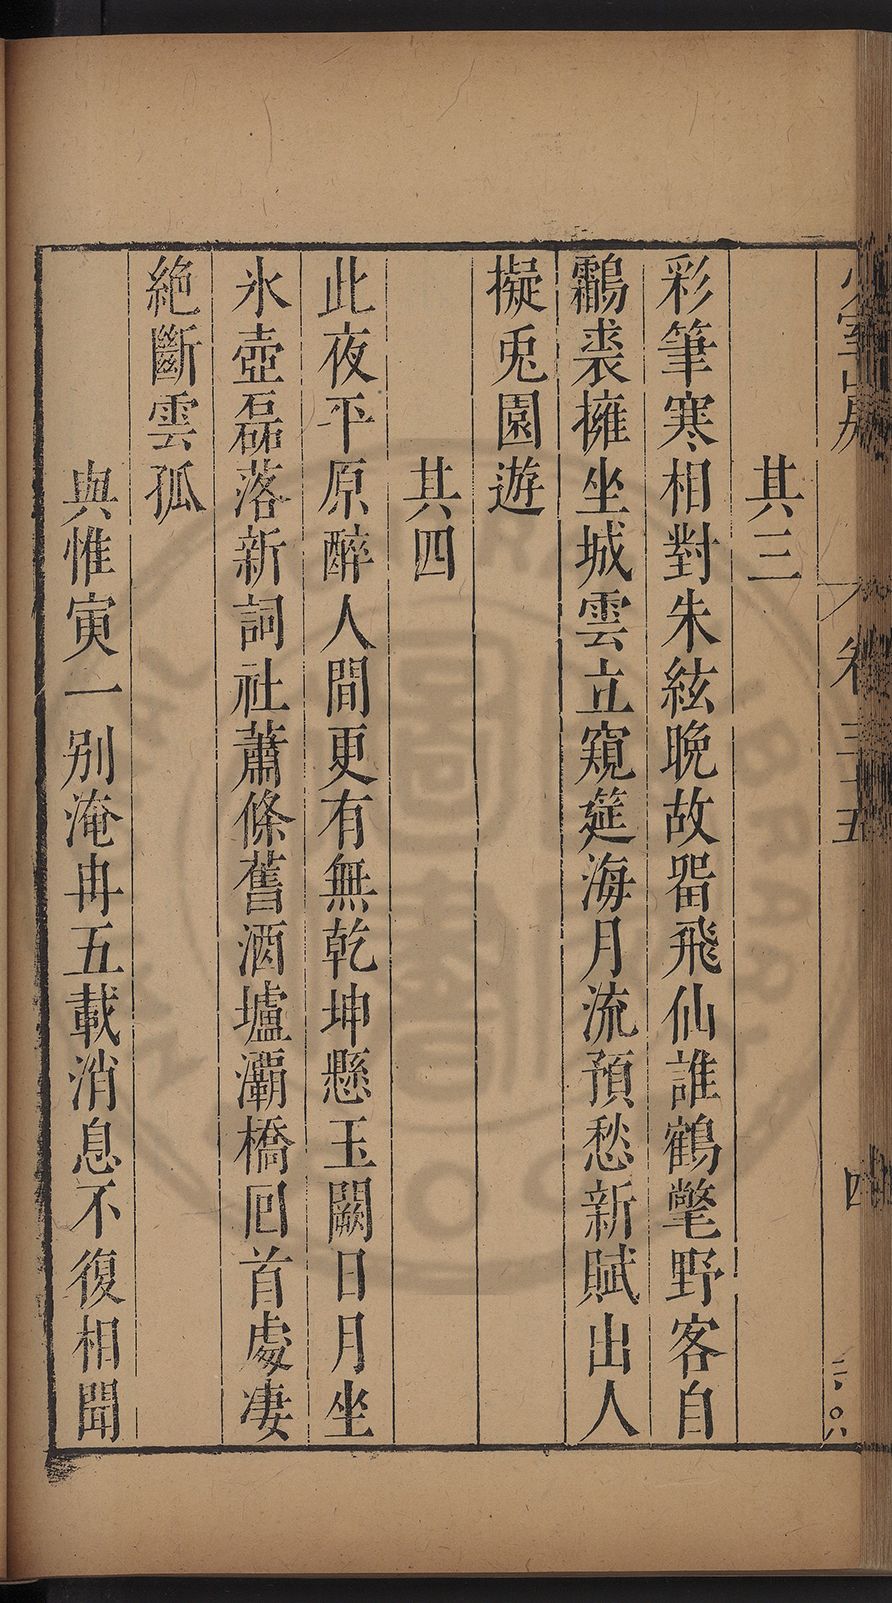 少室山房
卷三十五
四
其三
彩筆寒相對朱絃晚故畱飛仙誰鶴氅野客自
鸘裘擁坐城雲立窺筵海月流預愁新賦出人
擬兎園遊
其四
此夜平原醉人間更有無乾坤懸玉闕日月坐
氷壺磊落新詞社蕭條舊酒壚灞橋囘首處凄
絶斷雲孤
與惟寅一別淹冉五載消息不復相聞